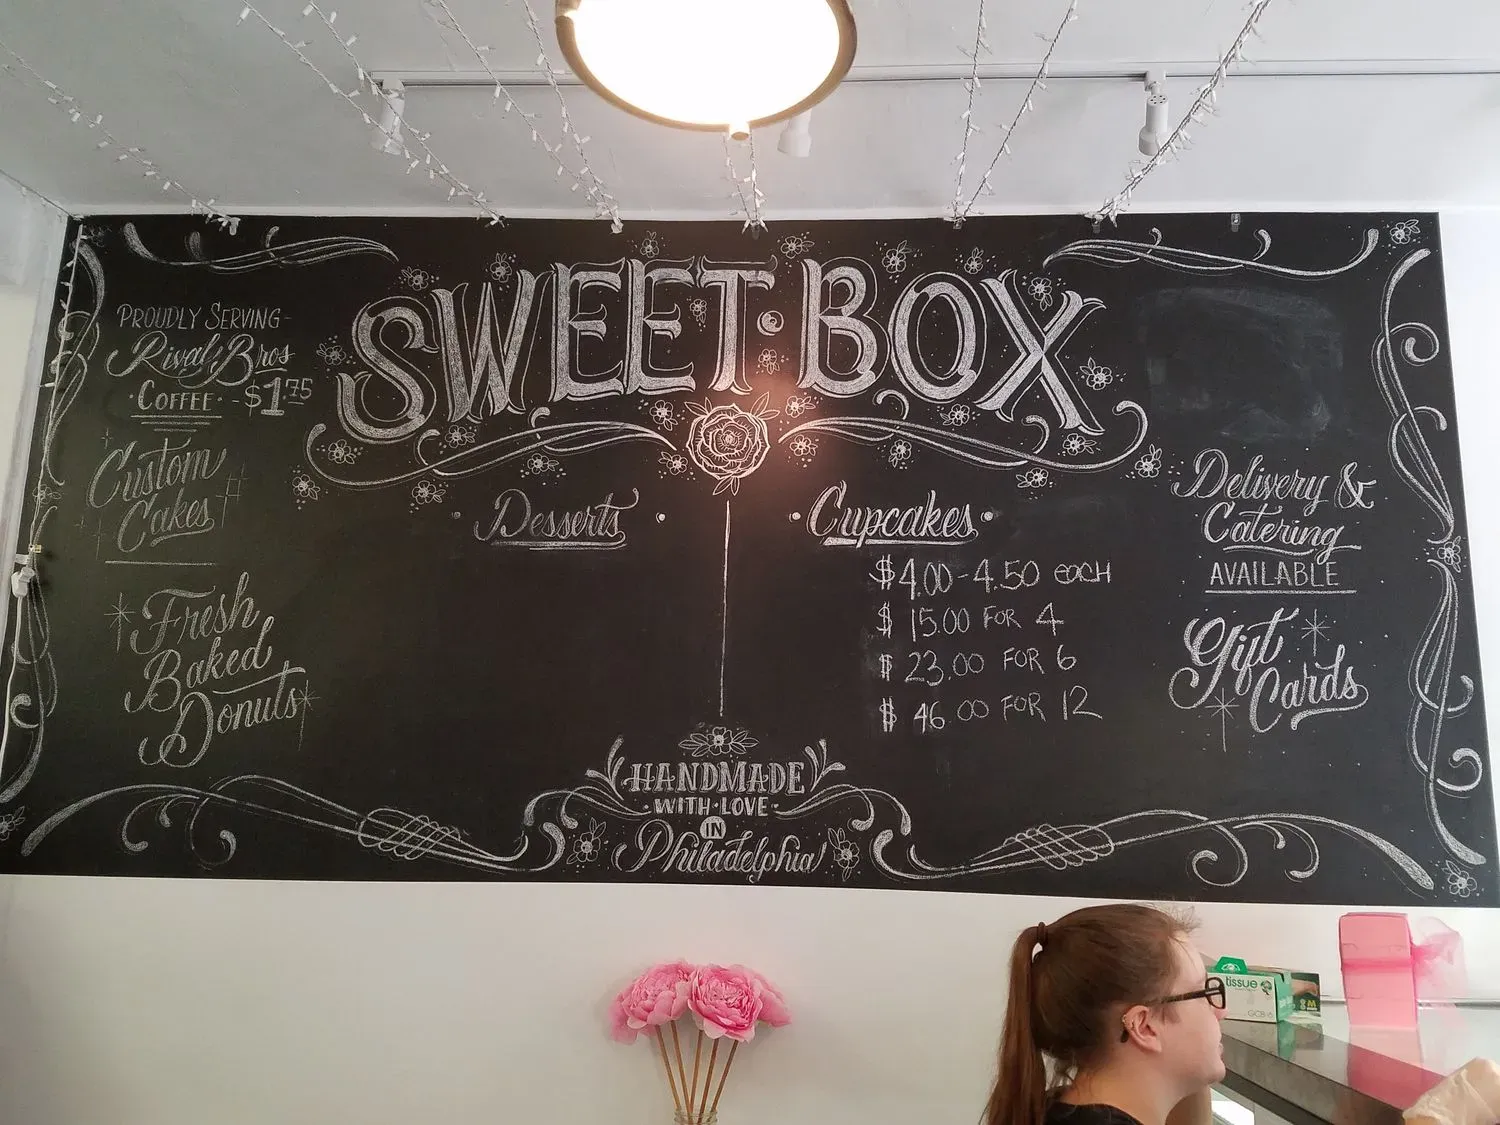 SWEET • BOX
PROUDLY SERVING -
Rival Bros
• COFFEE • - $1.75
Custom
Cakes
Fresh
Baked
Donuts
• Desserts •
• Cupcakes •
$4.00 - 4.50 EACH
$ 15.00 FOR 4
$ 23.00 FOR 6
$ 46 00 FOR 12
Delivery &
Catering
AVAILABLE
Gift
Cards
HANDMADE
• WITH • LOVE •
IN
Philadelphia
tissue
GCB-6